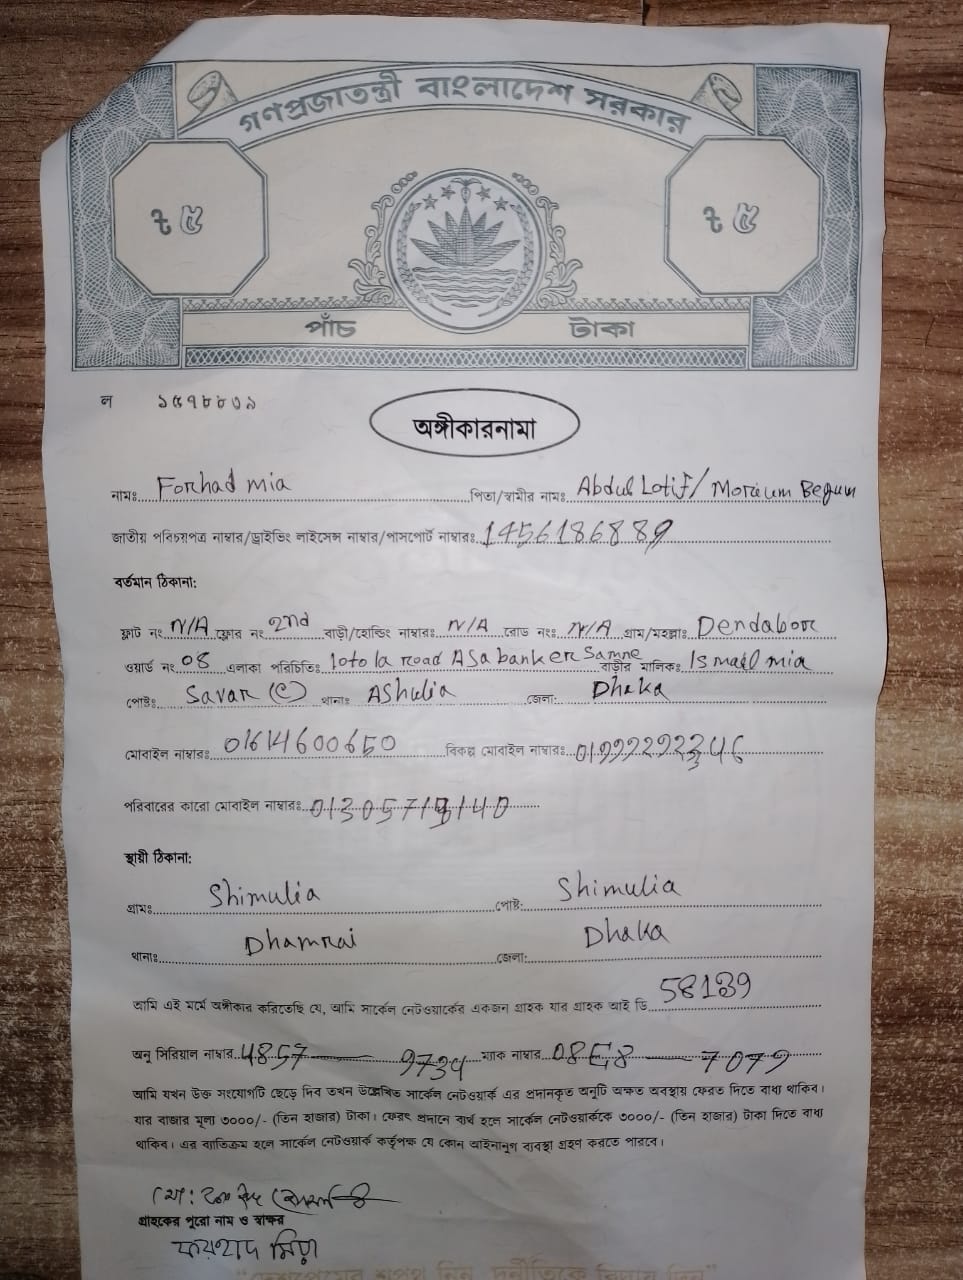 গণপ্রজাতন্ত্রী বাংলাদেশ সরকার
৳ ৫ ৳ ৫
পাঁচ টাকা
ল ১৫৭৮৮৩৯
অঙ্গীকারনামা
নামঃ Forhad mia পিতা/স্বামীর নামঃ Abdul Lotif/ Morium Begum
জাতীয় পরিচয়পত্র নাম্বার/ড্রাইভিং লাইসেন্স নাম্বার/পাসপোর্ট নাম্বারঃ 1456186889
বর্তমান ঠিকানা:
ফ্লাট নং N/A ফ্লোর নং 2nd বাড়ী/হোল্ডিং নাম্বারঃ N/A রোড নংঃ N/A গ্রাম/মহল্লাঃ Dendabor
ওয়ার্ড নং 08 এলাকা পরিচিতিঃ lotola road ASa banker Samne বাড়ীর মালিকঃ Ismail mia
পোষ্টঃ Savar (C) থানাঃ AShulia জেলা: Dhaka
মোবাইল নাম্বারঃ 01614600650 বিকল্প মোবাইল নাম্বারঃ
পরিবারের কারো মোবাইল নাম্বারঃ
স্থায়ী ঠিকানা:
গ্রামঃ Shimulia পোষ্ট: Shimulia
থানাঃ Dhamrai জেলা: Dhaka
আমি এই মর্মে অঙ্গীকার করিতেছি যে, আমি সার্কেল নেটওয়ার্কের একজন গ্রাহক যার গ্রাহক আই ডি 58139
অনু সিরিয়াল নাম্বার 4857 — 9734 ম্যাক নাম্বার 08E8 — 7079
আমি যখন উক্ত সংযোগটি ছেড়ে দিব তখন উল্লেখিত সার্কেল নেটওয়ার্ক এর প্রদানকৃত অনুটি অক্ষত অবস্থায় ফেরত দিতে বাধ্য থাকিব।
যার বাজার মূল্য ৩০০০/- (তিন হাজার) টাকা। ফেরৎ প্রদানে ব্যর্থ হলে সার্কেল নেটওয়ার্ককে ৩০০০/- (তিন হাজার) টাকা দিতে বাধ্য
থাকিব। এর ব্যতিক্রম হলে সার্কেল নেটওয়ার্ক কর্তৃপক্ষ যে কোন আইনানুগ ব্যবস্থা গ্রহণ করতে পারবে।
গ্রাহকের পুরো নাম ও স্বাক্ষর
ফরহাদ মিয়া
"দেশপ্রেমের শপথ নিন, দুর্নীতিকে বিদায় দিন"